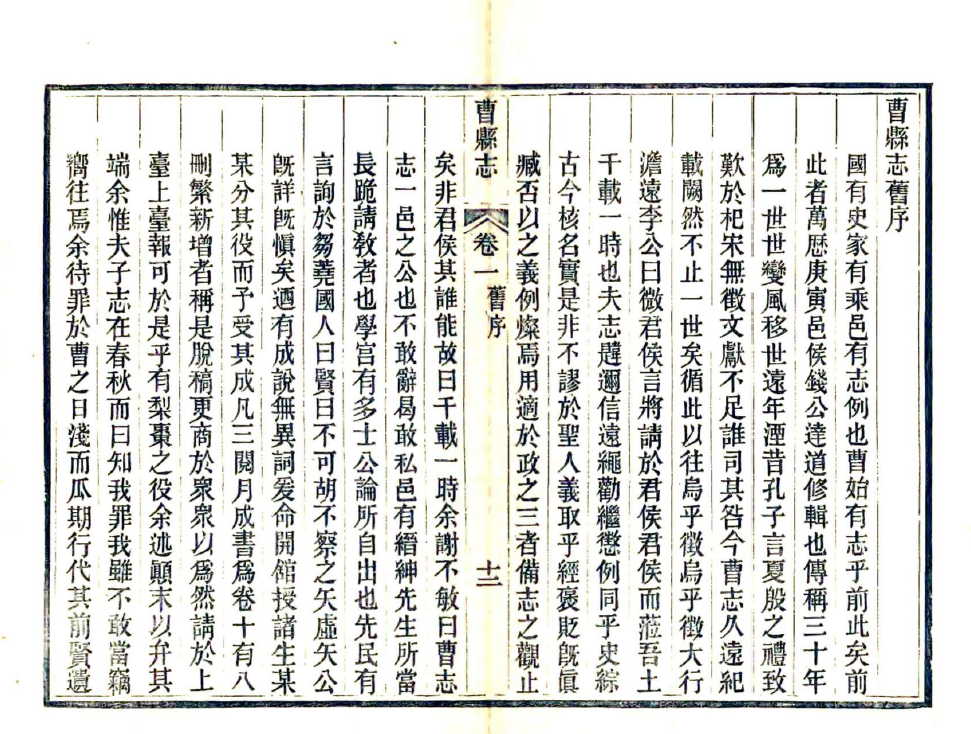 曹縣志舊序
國有史家有乘邑有志例也曹始有志乎前此矣前
此者萬歷庚寅邑侯錢公達道修輯也傳稱三十年
爲一世世變風移世遠年湮昔孔子言夏殷之禮致
歎於杞宋無徵文獻不足誰司其咎今曹志久遠紀
載闕然不止一世矣循此以往烏乎徵烏乎徵大行
澹遠李公曰微君侯言將請於君侯君侯而蒞吾土
千載一時也夫志韙邇信遠繩勸繼懲例同乎史綜
古今核名實是非不謬於聖人義取乎經褒貶旣眞
臧否以之義例燦焉用適於政之三者備志之觀止
曹縣志
卷一 舊序
十二
矣非君侯其誰能故曰千載一時余謝不敏曰曹志
志一邑之公也不敢辭曷敢私邑有縉紳先生所當
長跪請教者也學宫有多士公論所自出也先民有
言詢於芻蕘國人曰賢曰不可胡不察之矢虛矢公
旣詳旣愼矣迺有成說無異詞爰命開館授諸生某
某分其役而予受其成凡三閱月成書爲卷十有八
刪繁新增者稱是脫稿更商於衆衆以爲然請於上
臺上臺報可於是乎有梨棗之役余述顚末以弁其
端余惟夫子志在春秋而曰知我罪我雖不敢當竊
嚮往焉余待罪於曹之日淺而瓜期行代其前賢遺